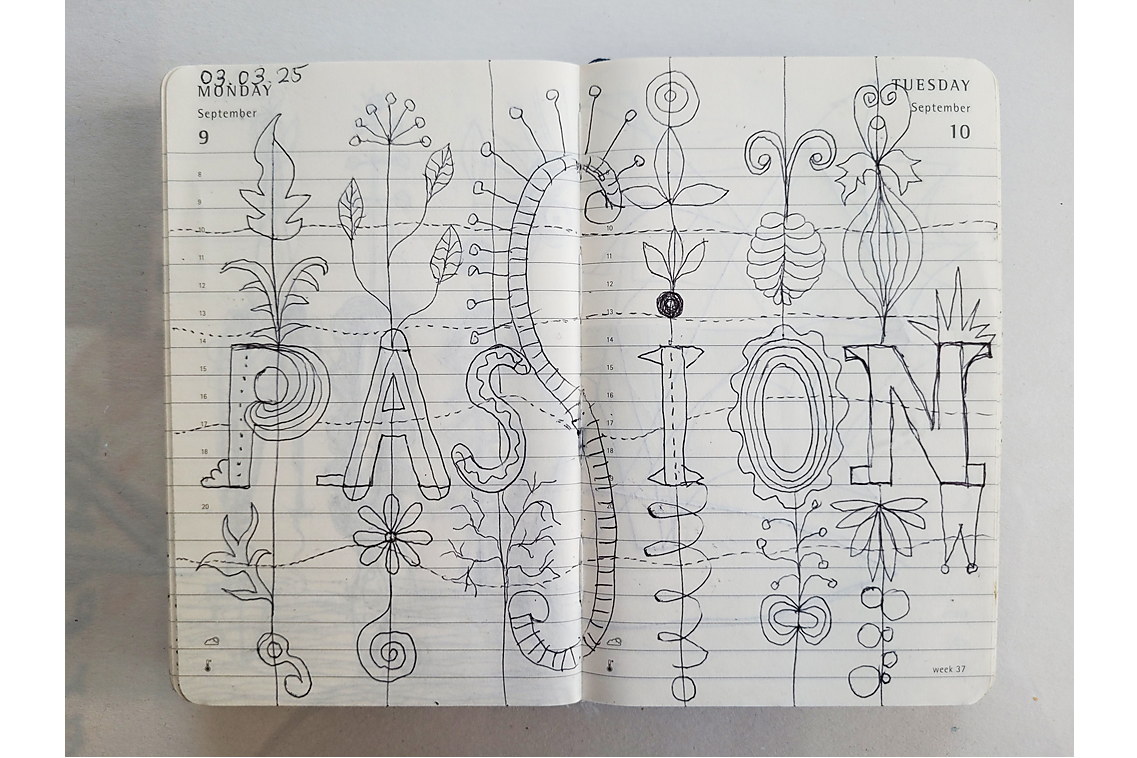 03.03.25
MONDAY
September
9
TUESDAY
September
10
8
9
10
11
12
13
14
15
16
17
18
20
10
11
12
13
14
15
16
17
18
PASSION
week 37